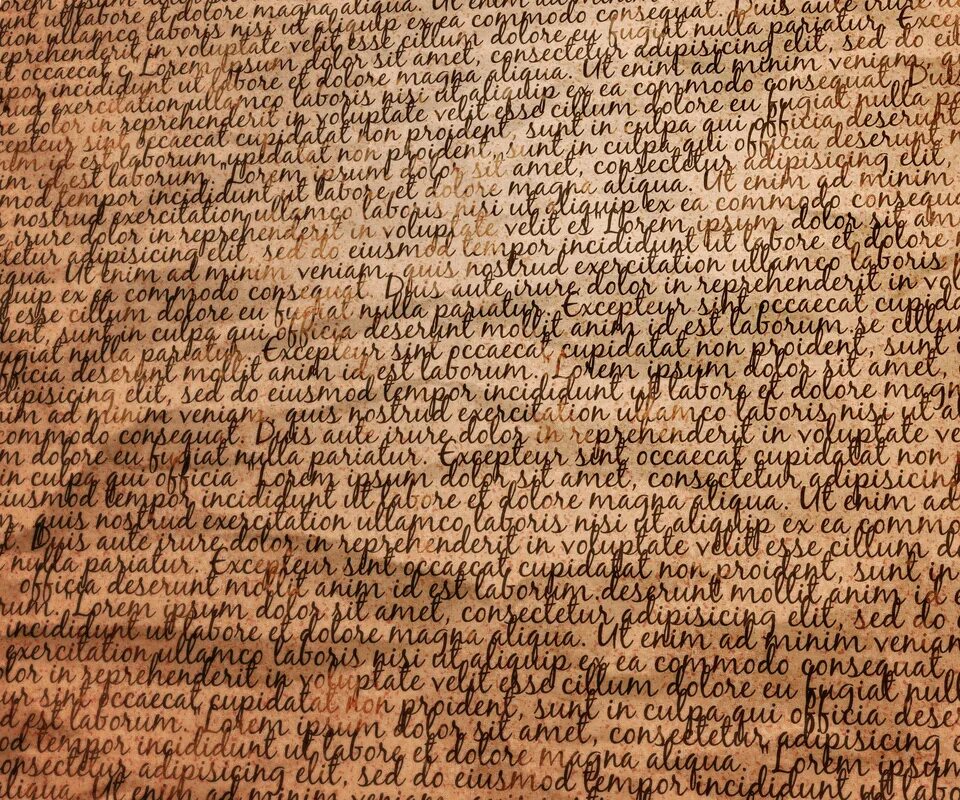 et dolore magna aliqua. Ut enim ad minim
tion ullamco laboris nisi ut aliquip ex ea commodo consequat. Duis aute irure
eprehenderit in voluptate velit esse cillum dolore eu fugiat nulla pariatur. Exce
t occaecat c Lorem ipsum dolor sit amet, consectetur adipisicing elit, sed do ei
por incididunt ut labore et dolore magna aliqua. Ut enim ad minim veniam, q
rud exercitation ullamco laboris nisi ut aliquip ex ea commodo consequat. Dui
re dolor in reprehenderit in voluptate velit esse cillum dolore eu fugiat nulla p
cepteur sint occaecat cupidatat non proident, sunt in culpa qui officia deserunt
nim id est laborum.upidatat non proident, sunt in culpa qui officia deserunt
im id est laborum. Lorem ipsum dolor sit amet, consectetur adipisicing elit,
mod tempor incididunt ut labore et dolore magna aliqua. Ut enim ad minim
nostrud exercitation ullamco laboris nisi ut aliquip ex ea commodo consequa
irure dolor in reprehenderit in voluptate velit es Lorem ipsum dolor sit am
tetur adipisicing elit, sed do eiusmod tempor incididunt ut labore et dolore m
iqua. Ut enim ad minim veniam, quis nostrud exercitation ullamco laboris
quip ex ea commodo consequat. Duis aute irure dolor in reprehenderit in vo
t esse cillum dolore eu fugiat nulla pariatur. Excepteur sint occaecat cupid
ent, sunt in culpa qui officia deserunt mollit anim id est laborum.se cillu
ugiat nulla pariatur. Excepteur sint occaecat cupidatat non proident, sunt i
fficia deserunt mollit anim id est laborum. Lorem ipsum dolor sit amet,
dipisicing elit, sed do eiusmod tempor incididunt ut labore et dolore magn
nim ad minim veniam, quis nostrud exercitation ullamco laboris nisi ut a
commodo consequat. Duis aute irure dolor in reprehenderit in voluptate ve
m dolore eu fugiat nulla pariatur. Excepteur sint occaecat cupidatat non
in culpa qui officia Lorem ipsum dolor sit amet, consectetur adipisicing
eiusmod tempor incididunt ut labore et dolore magna aliqua. Ut enim ad
m, quis nostrud exercitation ullamco laboris nisi ut aliquip ex ea commo
t. Duis aute irure dolor in reprehenderit in voluptate velit esse cillum d
nulla pariatur. Excepteur sint occaecat cupidatat non proident, sunt in
officia deserunt mollit anim id est laborum.deserunt mollit anim id e
rum. Lorem ipsum dolor sit amet, consectetur adipisicing elit, sed do
incididunt ut labore et dolore magna aliqua. Ut enim ad minim veniam
exercitation ullamco laboris nisi ut aliquip ex ea commodo consequat
olor in reprehenderit in voluptate velit esse cillum dolore eu fugiat null
ur sint occaecat cupidatat non proident, sunt in culpa qui officia dese
d est laborum. Lorem ipsum dolor sit amet, consectetur adipisicing e
od tempor incididunt ut labore et dolore magna aliqua. Lorem ipsum
onsectetur adipisicing elit, sed do eiusmod tempor incididunt ut labo
aliqua. Ut enim ad minim veniam, quis nostrud exercitation ullamco